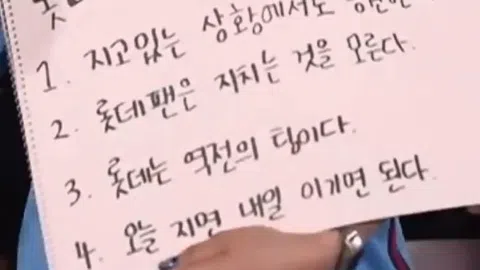 롯
1. 지고있는 상황에서도
2. 롯데팬은 지치는 것을 모른다.
3. 롯데는 역전의 팀이다.
4. 오늘 지면 내일 이기면 된다.